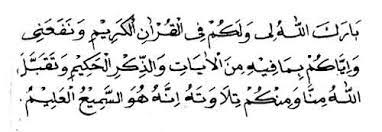 بَارَكَ اللهُ لِى وَلَكُمْ فِى الْقُرْآنِ الْكَرِيْمِ وَنَفَعَنِى
وَاِيَّاكُمْ بِمَافِيْهِ مِنَ الْآيَاتِ وَالذِّكْرِ الْحَكِيْمِ وَتَقَبَّلَ
اللهُ مِنَّا وَمِنْكُمْ تِلَاوَتَهُ اِنَّهُ هُوَ السَّمِيْعُ الْعَلِيْمُ.